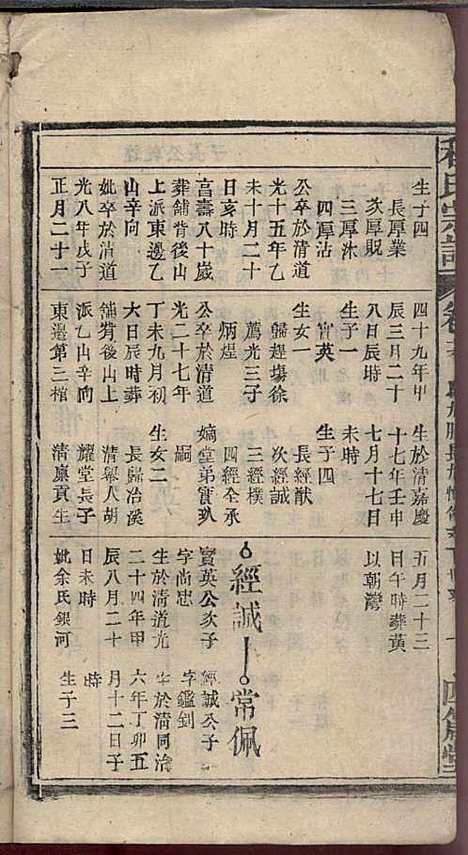 程氏宗譜
生子四
長厚業
次厚賑
三厚沐
四厚沾
公卒於清道
光十五年乙
未十月二十
日亥時
言壽八十歲
葬舖背後山
上派東邊乙
山辛向
妣卒於清道
光八年戊子
正月二十一
四十九年甲
辰三月二十
八日辰時
生子一
實英
生女一
歸趕塲徐
薦光三子
炳煋
公卒於清道
光二十七年
丁未九月初
六日辰時葬
舖背後山上
派乙山辛向
東邊第三棺
生於清嘉慶
十七年壬申
七月十七日
未時
生子四
長經猷
次經誠
三經樸
四經全承
嫡堂弟實玖
嗣
生女二
長歸冶溪
清舉人胡
耀堂長子
清廩貢生
五月二十三
日午時葬黃
以朝灣
經誠
寳英公次子
字尚忠
生於清道光
二十四年甲
辰八月二十
日未時
妣余氏銀河
常佩
經誠公子
字鑑釗
生於清同治
六年丁卯五
月十二日子
時
生子三